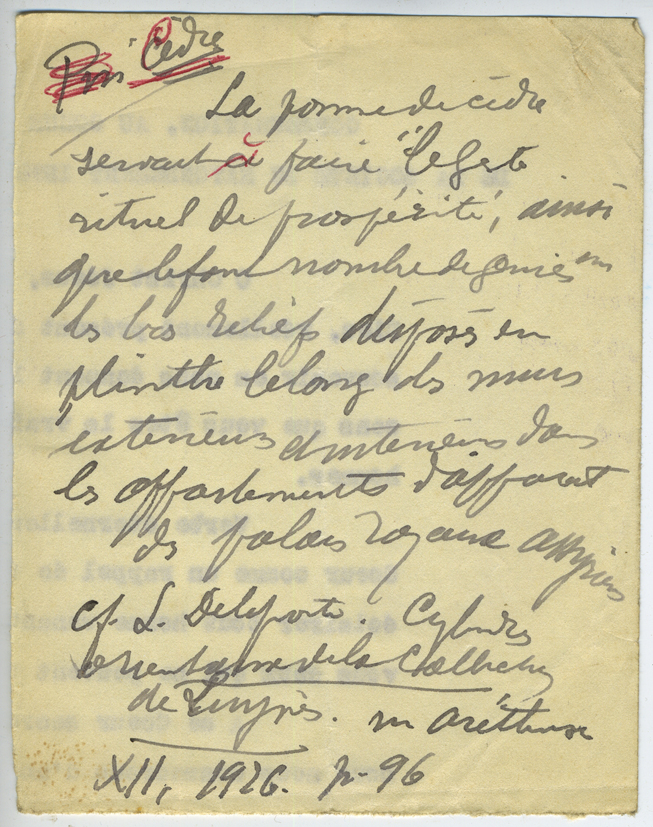 Cèdre
La pomme de cèdre
servait à faire "le geste
rituel de prospérité", ainsi
que le font nombre de génies sur
les bas reliefs disposés en
plinthe le long des murs
extérieurs d'intérieurs dans
les appartements d'apparat
des palais royaux assyriens
cf. L. Delaporte. Cylindres
orientaux de la Collection
de Luynes. in Aréthuse
XII, 1926. p. 96